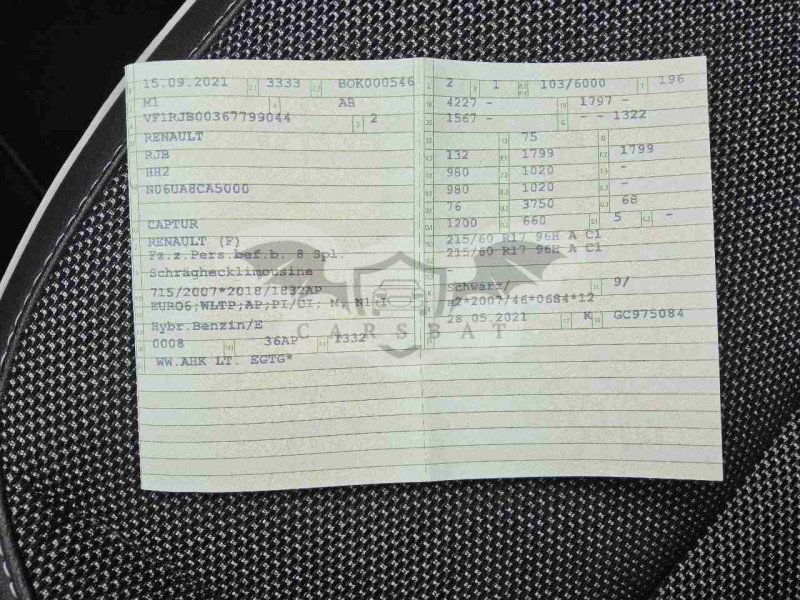 15.09.2021 3333 BOK000546
M1 AB
VF1RJB00367799044 2
RENAULT
RJB
HH2
N06UA8CA5000
CAPTUR
RENAULT (F)
Fz.z.Pers.bef.b. 8 Spl.
Schräghecklimousine
715/2007*2018/1832AP
EURO6;WLTP;AP;PI/CI; M, N1 I
Hybr.Benzin/E
0008 36AP 1332
WW.AHK LT. EGTG*
2 1 103/6000 196
4227 - 1797 -
1567 - - - 1322
75
132 1799 1799
980 1020 -
980 1020 -
76 3750 68
1200 660 5 -
215/60 R17 96H A C1
215/60 R17 96H A C1
-
Schwarz/ 9/
e2*2007/46*0684*12
28.05.2021 K GC975084
CARSBAT